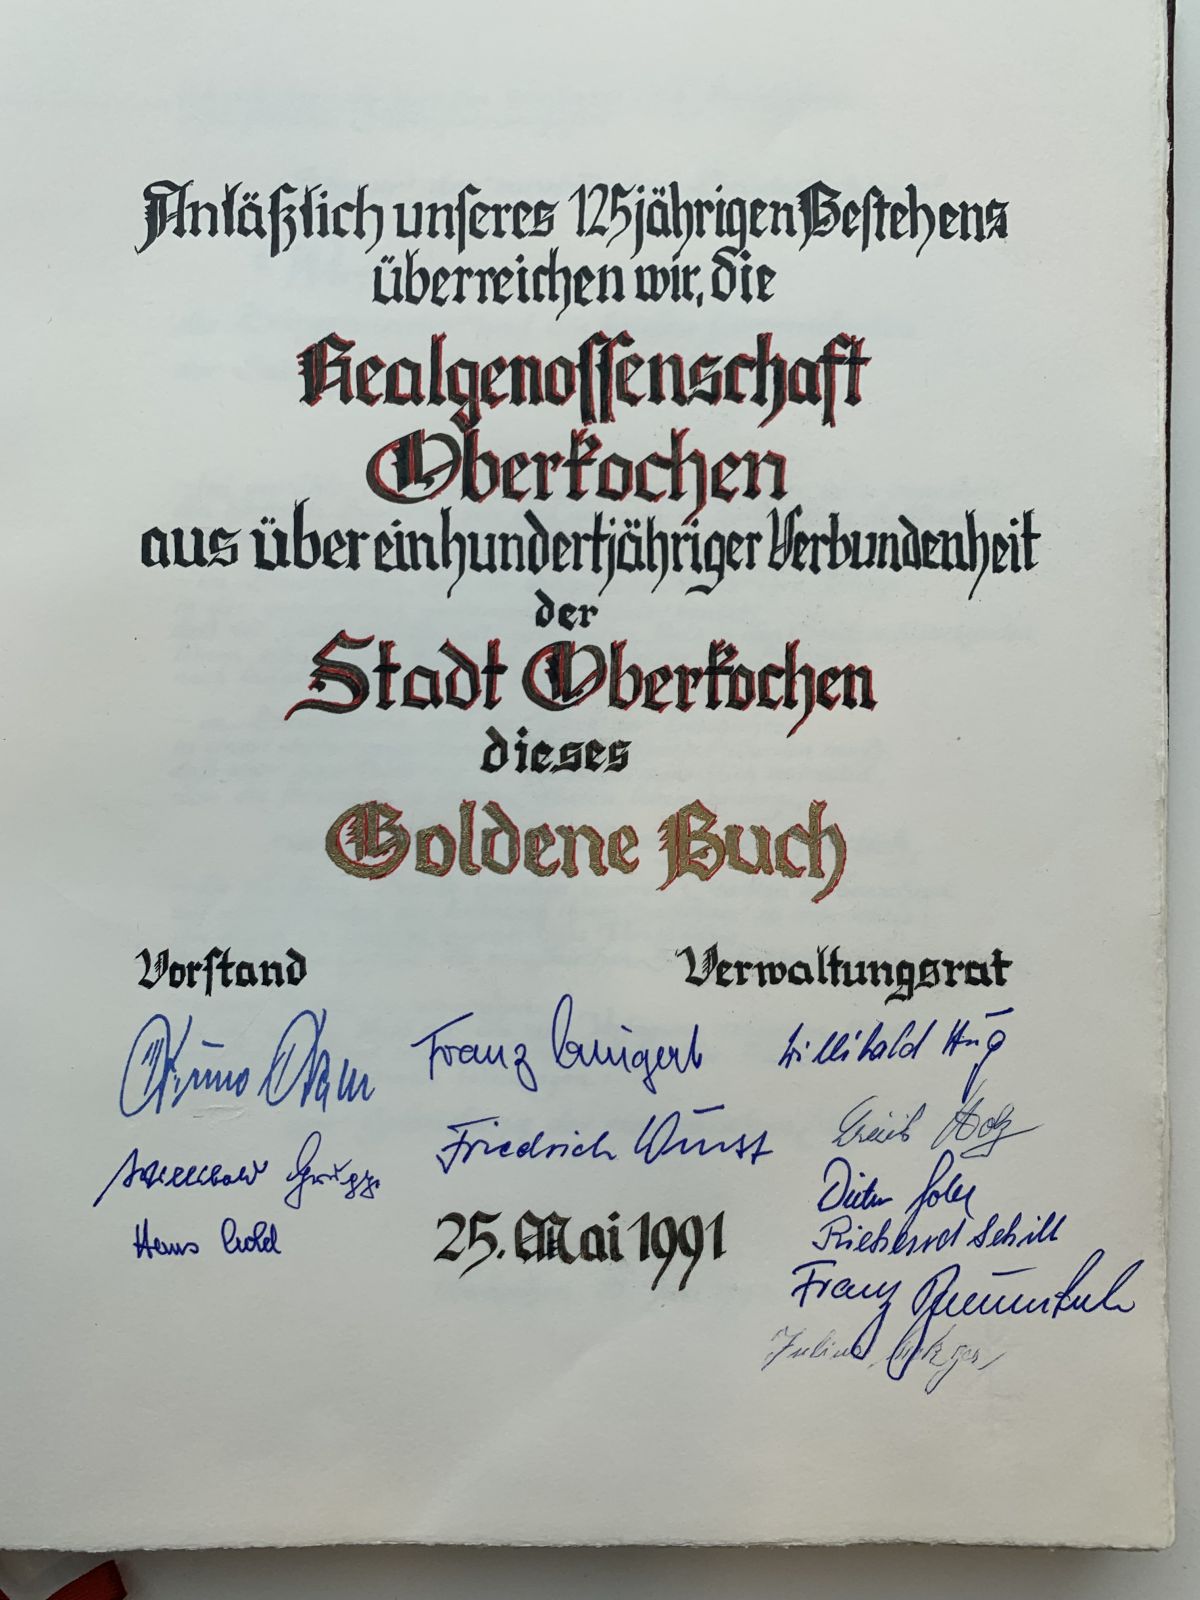 Anläßlich unseres 125jährigen Bestehens
überreichen wir, die
Realgenossenschaft
Oberkochen
aus über einhundertjähriger Verbundenheit
der
Stadt Oberkochen
dieses
Goldene Buch
Vorstand
Verwaltungsrat
Bruno
Franz
Willibald Hug
Friedrich Wunst
Hans Gold
25. Mai 1991
Richard Schill
Franz
Julius